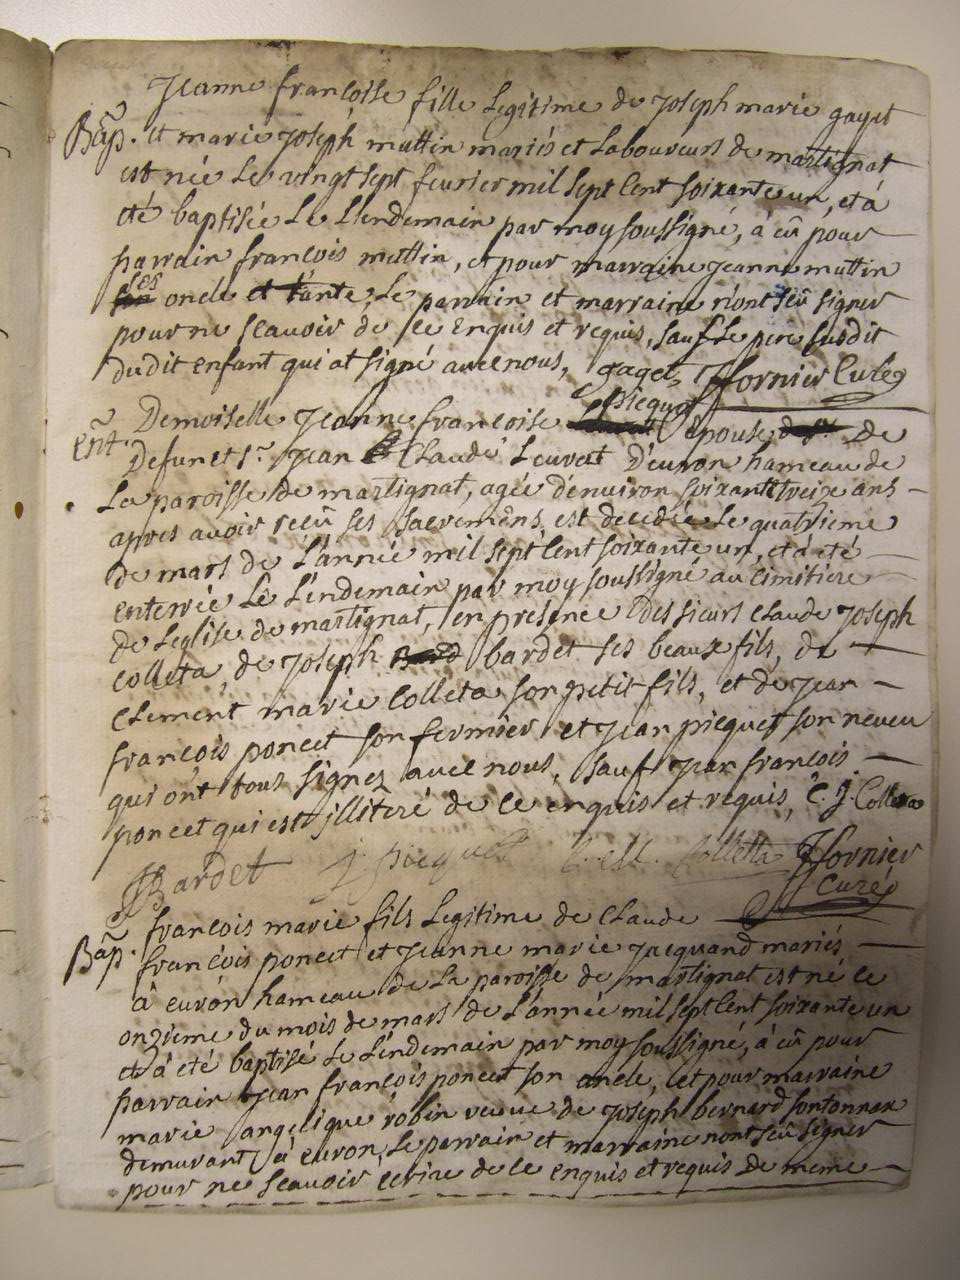 Jeanne françoise fille Legitime de Joseph marie gayet
Bap. et marie Joseph muttin mariés et Laboureurs de martignat
est née Le vingt sept feurier mil sept Cent soixante un, et à
eté baptisée Le Llendemain par moy soussigné, à eû pour
parrain françois muttin, et pour marraine Jeanne muttin
ses oncle et tante, Le parrain et marraine n'ont sçû signer
pour ne scauoir de ce enquis et requis, sauf Le pere susdit
dudit enfant qui at signé auec nous, gaget, Jfornier Curé
picquet
Ent. Demoiselle Jeanne françoise épouse de
Defunct Sr. Jean Claude Leuvat D'euron hameau de
La paroisse de martignat, agée d'enuiron soixante treize ans
apres auoir reçû ses sacremens, est decedée Le quatrieme
de mars de L'année mil sept Cent soixante un, et à été
enterrée Le L'endemain par moy soussigné au cimitiere
de Leglise de martignat, en presence des sieurs Claude Joseph
Colleta, de Joseph bardet ses beaux fils, de
Clement marie Colleta son petit fils, et de Jean
françois poncet son fermier et Jean picquet son neueu
qui ont tous signez auec nous, sauf Jean françois
poncet qui est illiteré de ce enquis et requis, C. J. Colleta
JBardet J picquet Colletta Jfornier
Curé
françois marie fils Legitime de Claude
Bap. françois poncet et Jeanne marie Jacquand mariés
à euron hameau de La paroisse de martignat est né le
onzieme du mois de mars de L'année mil sept Cent soixante un
et à eté baptisé Le L'endemain par moy soussigné, à eû pour
parrain Jean françois poncet son oncle, et pour marraine
marie angelique robin veuue de Joseph bernard sontonnax
demurant à euron, Le parrain et marraine n'ont sçû signer
pour ne scauoir ecrire de ce enquis et requis De meme